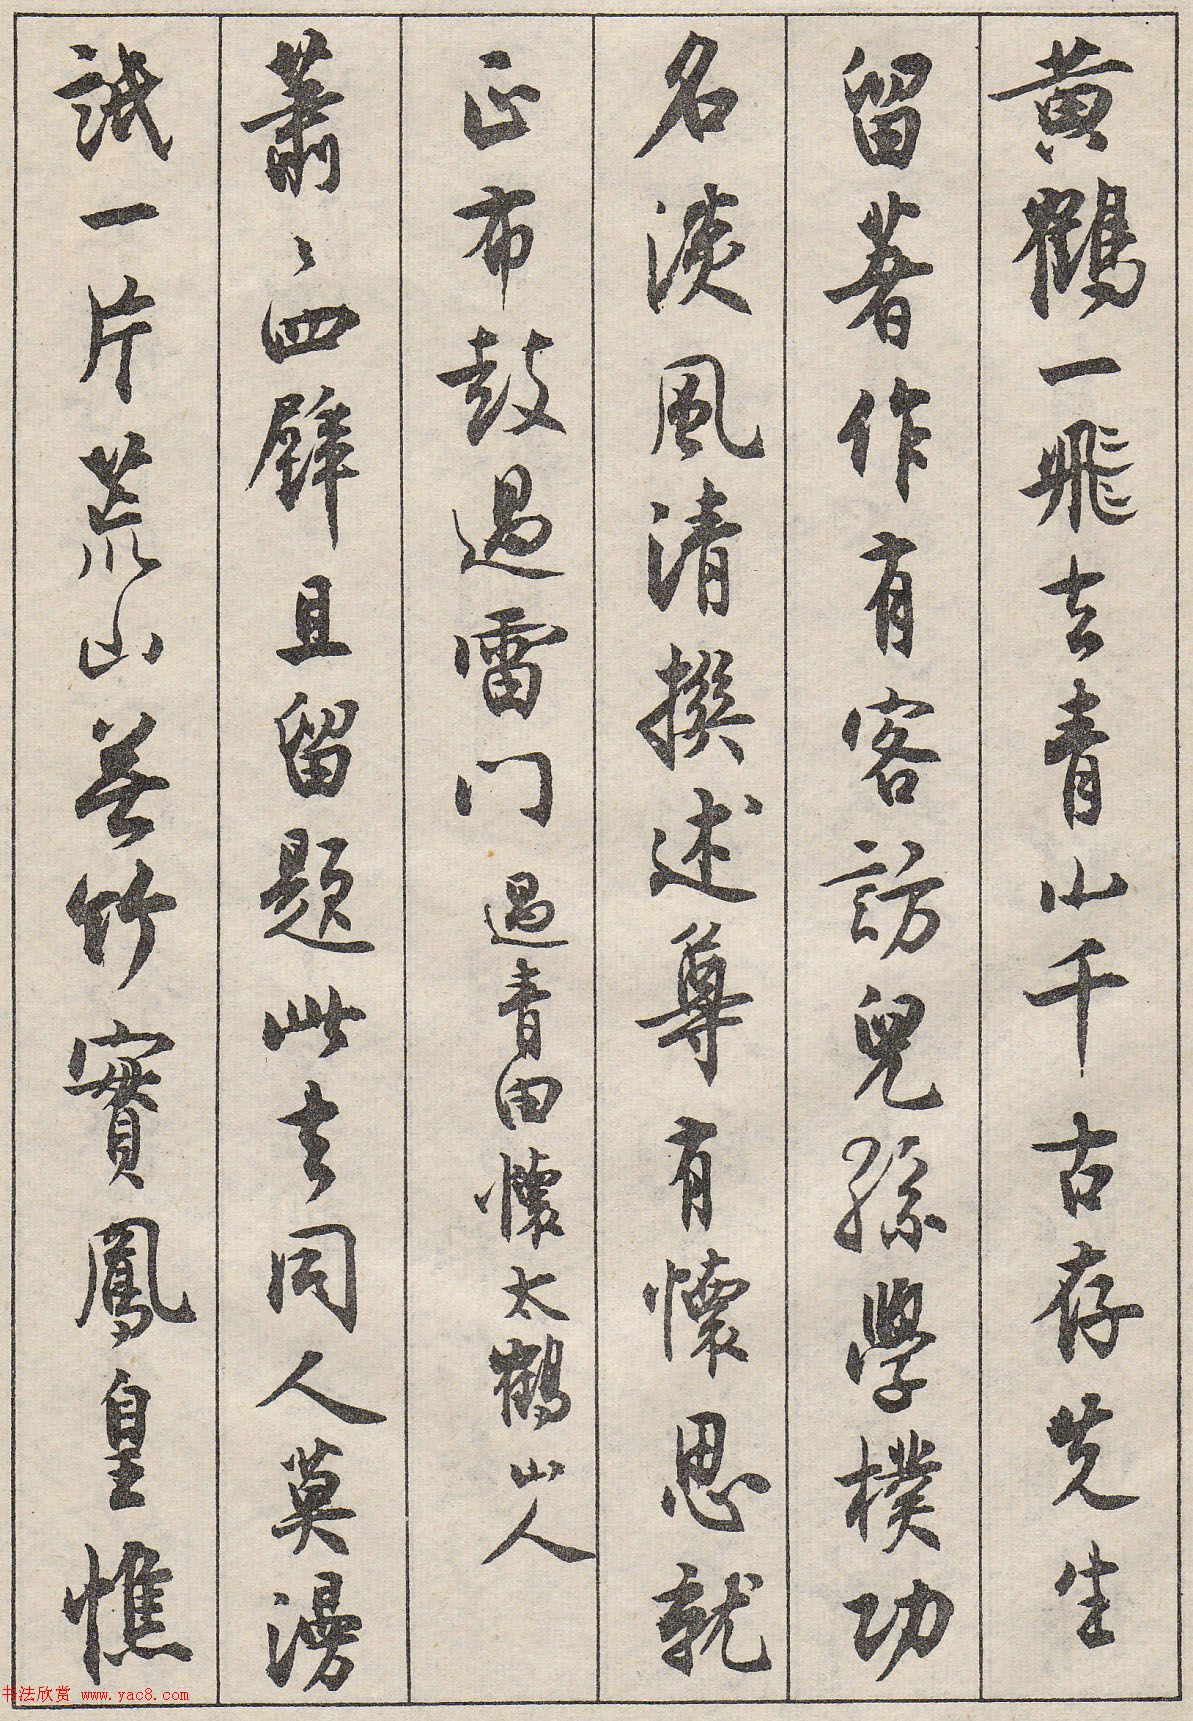 黄鶴一飛去青山千古存先生
留著作有客訪兒孫學樸功
名淡風清撰述尊有懷思就
正布鼓過雷門 過青田懷太鶴山人
蕭〻四壁且留題此去同人莫漫
詆一片荒山無竹實鳳皇憔
书法欣赏 www.yac8.com